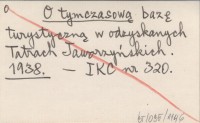 O tymczasową bazę
turystyczną w odzyskanych
Tatrach Jaworzyńskich.
1938. — IKC nr 320.